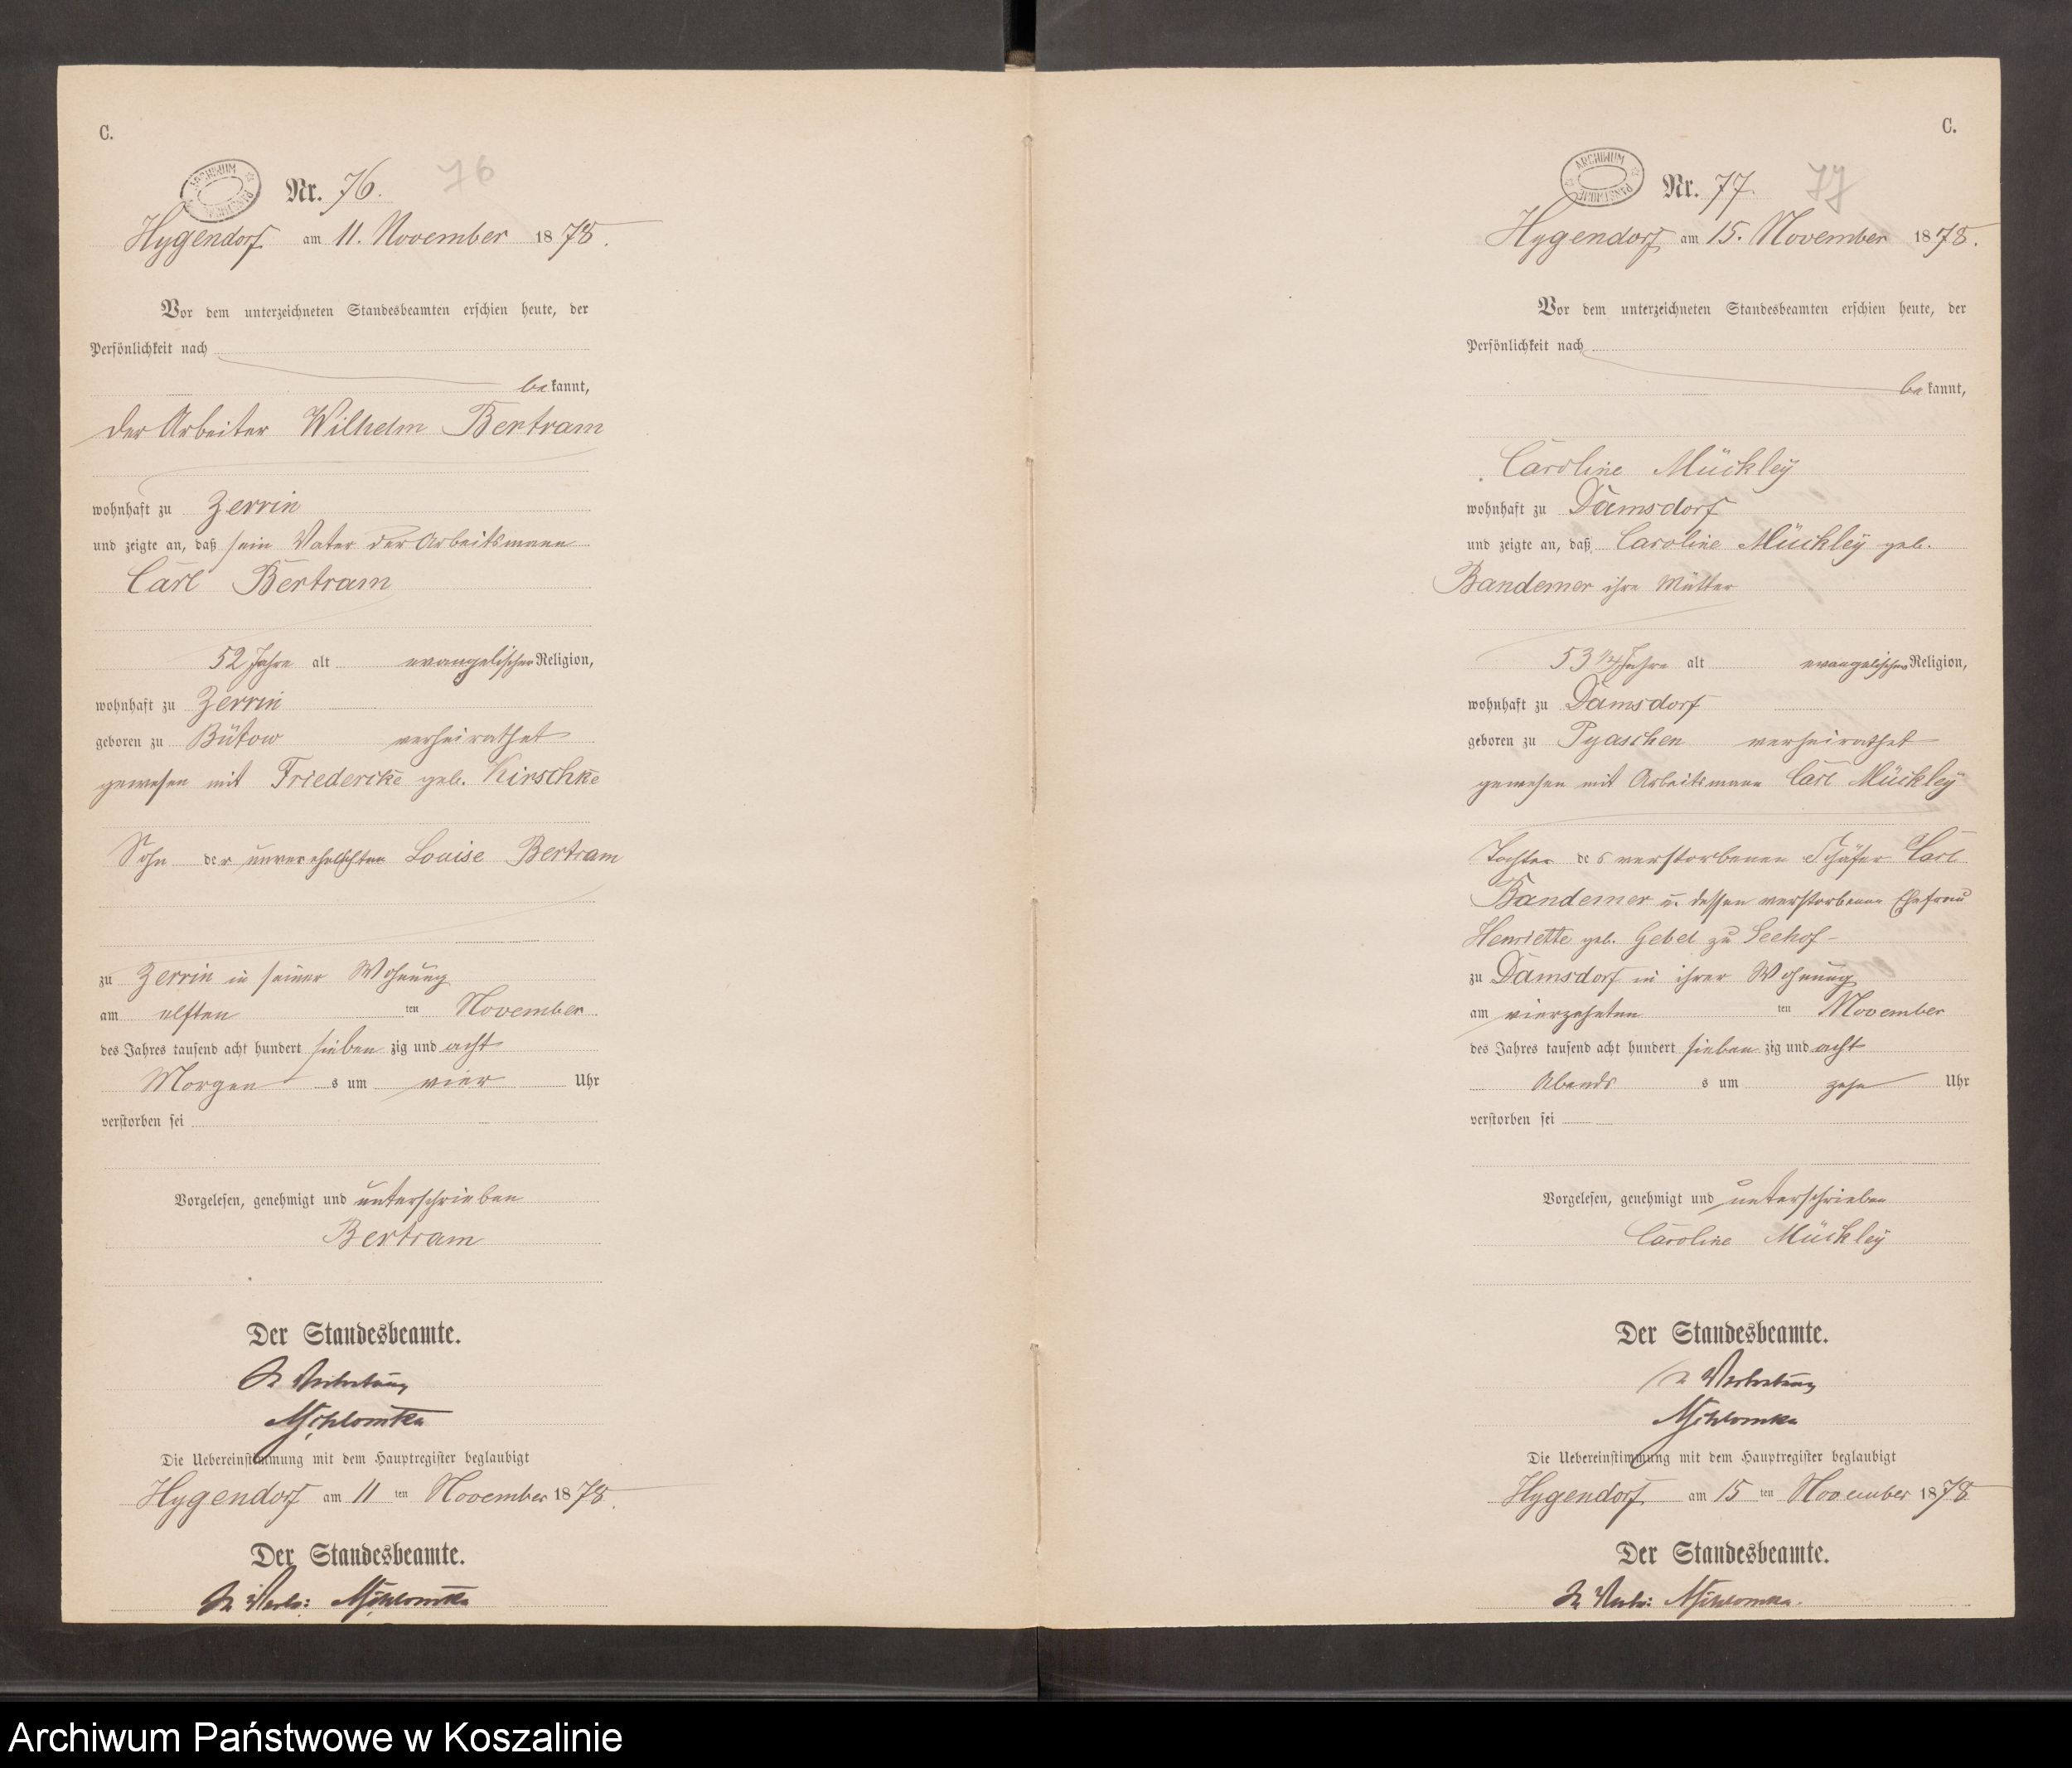 C.
ARCHIWUM PAŃSTWOWE
Nr. 76. 76
Hygendorf am 11. November 1878.
Vor dem unterzeichneten Standesbeamten erschien heute, der
Persönlichkeit nach
bekannt,
der Arbeiter Wilhelm Bertram
wohnhaft zu Zerrin
und zeigte an, daß sein Vater der Arbeitsmann
Carl Bertram
52 Jahre alt evangelischer Religion,
wohnhaft zu Zerrin
geboren zu Bütow verheirathet
gewesen mit Friedericke geb. Kirschke
Sohn der unverehelichten Louise Bertram
zu Zerrin in seiner Wohnung
am elften ten November
des Jahres tausend acht hundert siebenzig und acht
Morgens um vier Uhr
verstorben sei
Vorgelesen, genehmigt und unterschrieben
Bertram
Der Standesbeamte.
In Vertretung
Die Uebereinstimmung mit dem Hauptregister beglaubigt
Hygendorf am 11ten November 1878.
Der Standesbeamte.
In Vertr:
C.
ARCHIWUM PAŃSTWOWE
Nr. 77. 77
Hygendorf am 15. November 1878.
Vor dem unterzeichneten Standesbeamten erschien heute, der
Persönlichkeit nach
bekannt,
Caroline Mückley
wohnhaft zu Damsdorf
und zeigte an, daß Caroline Mückley geb.
Bandemer ihre Mutter
53 1/4 Jahre alt evangelischer Religion,
wohnhaft zu Damsdorf
geboren zu Pyaschen verheirathet
gewesen mit Arbeitsmann Carl Mückley
Tochter des verstorbenen Schäfer Carl
Bandemer u. dessen verstorbene Ehefrau
Henriette geb. Gebel zu Seehof-
zu Damsdorf in ihrer Wohnung
am vierzehnten ten November
des Jahres tausend acht hundert siebenzig und acht
Abends s um zehn Uhr
verstorben sei
Vorgelesen, genehmigt und unterschrieben
Caroline Mückley
Der Standesbeamte.
In Vertretung
Die Uebereinstimmung mit dem Hauptregister beglaubigt
Hygendorf am 15ten November 1878
Der Standesbeamte.
In Vertr:
Archiwum Państwowe w Koszalinie